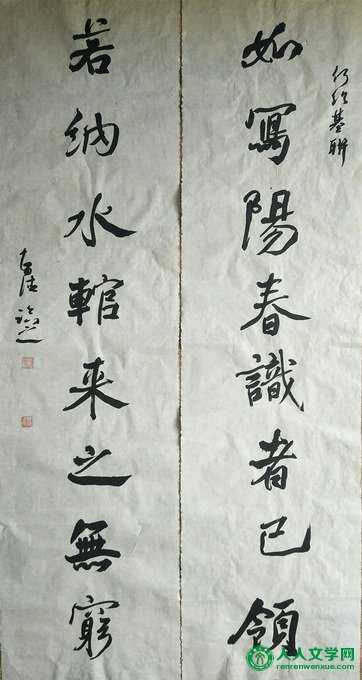 何绍基联
如寫陽春識者已領
若納水輨来之無窮
人人文学网
renrenwenxue.com